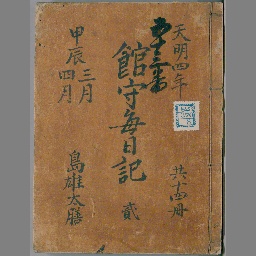 天明四年
共十四冊
館守毎日記 貳
甲辰 三月
四月
島雄太膳